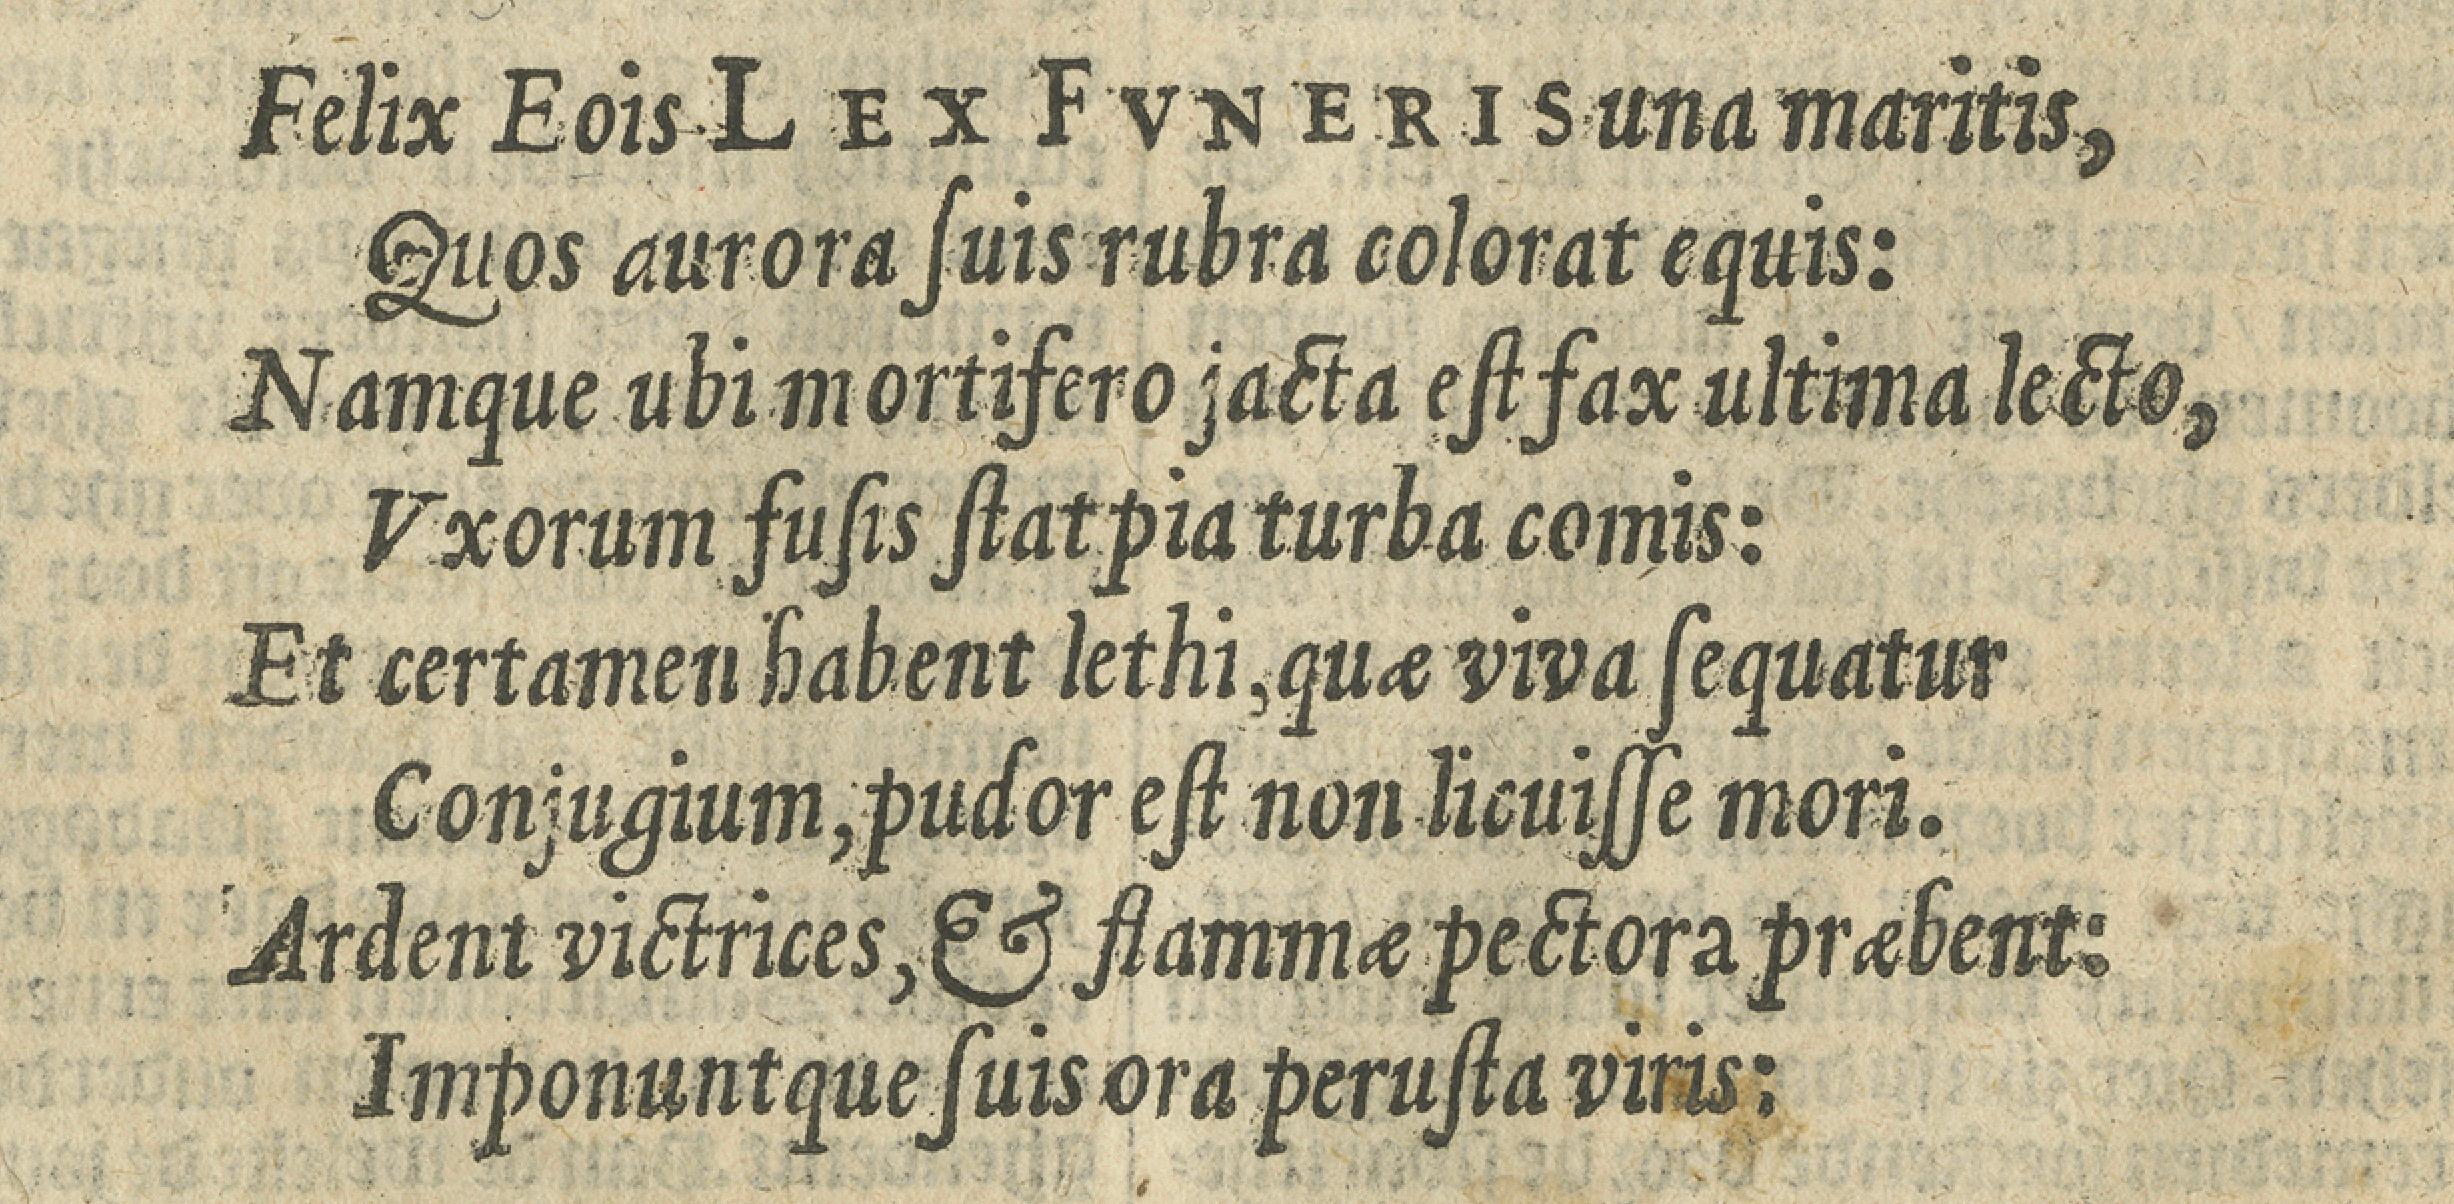 Felix Eois LEX FVNERIS una maritis,
Quos aurora ſuis rubra colorat equis:
Namque ubi mortifero jacta eſt fax ultima lecto,
Vxorum fuſis ſtat pia turba comis:
Et certamen habent lethi, quæ viva ſequatur
Conjugium, pudor eſt non licuiſſe mori.
Ardent victrices, & flammæ pectora præbent:
Imponuntque ſuis ora peruſta viris: